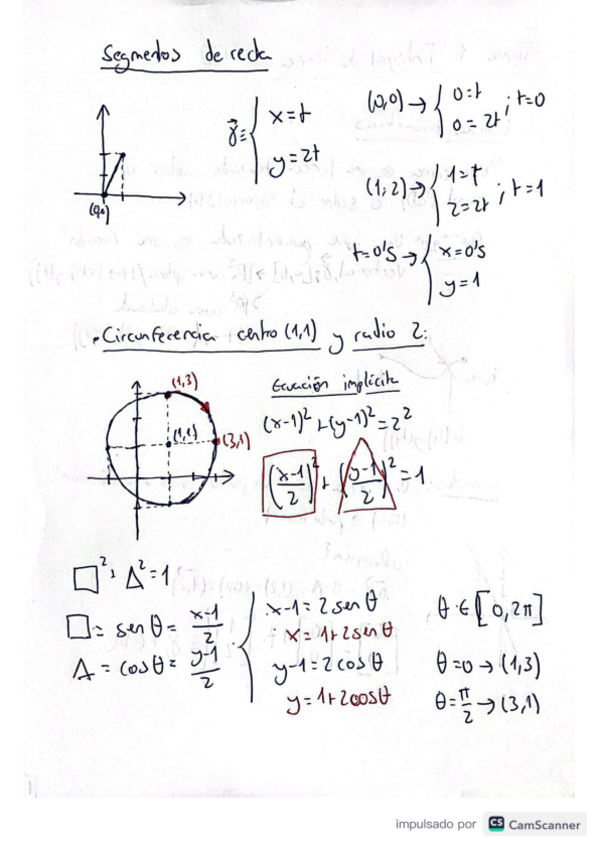 Segmentos de recta
γ⃗ ≡ { x = t
y = 2t
(0,0) → { 0 = t
0 = 2t ; t = 0
(1,2) → { 1 = t
2 = 2t ; t = 1
t = 0'5 → { x = 0'5
y = 1
(0,0)
• Circunferencia centro (1,1) y radio 2:
(1,3)
(1,1)
(3,1)
Ecuación implícita
(x-1)² + (y-1)² = 2²
(x-1/2)² + (y-1/2)² = 1
□² + Δ² = 1
□ = sen θ = x-1/2
Δ = cos θ = y-1/2
x-1 = 2 sen θ
x = 1+2 sen θ
y-1 = 2 cos θ
y = 1+2 cos θ
θ ∈ [0, 2π]
θ = 0 → (1,3)
θ = π/2 → (3,1)
impulsado por CS CamScanner